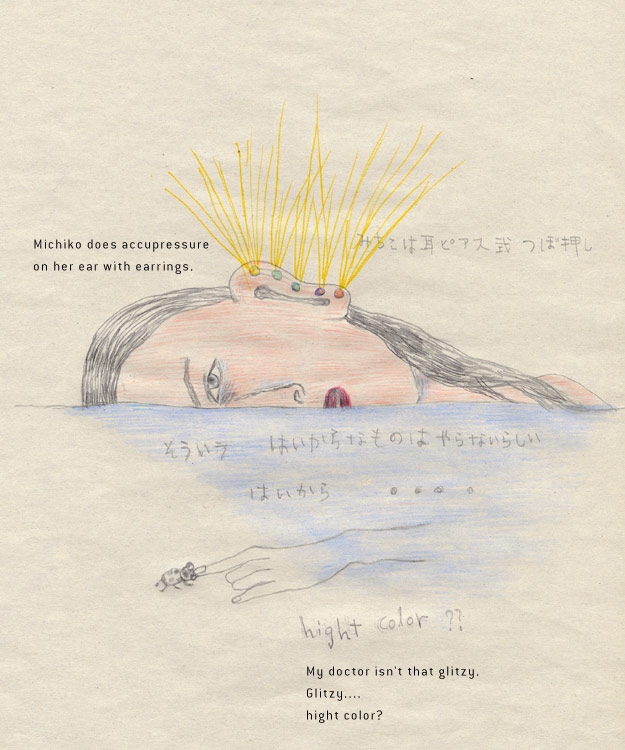 Michiko does accupressure
on her ear with earrings.
みちこは耳ピアス式 つぼ押し
そういう はいからなものは やらないらしい
はいから 。。。。
hight color ??
My doctor isn't that glitzy.
Glitzy....
hight color?